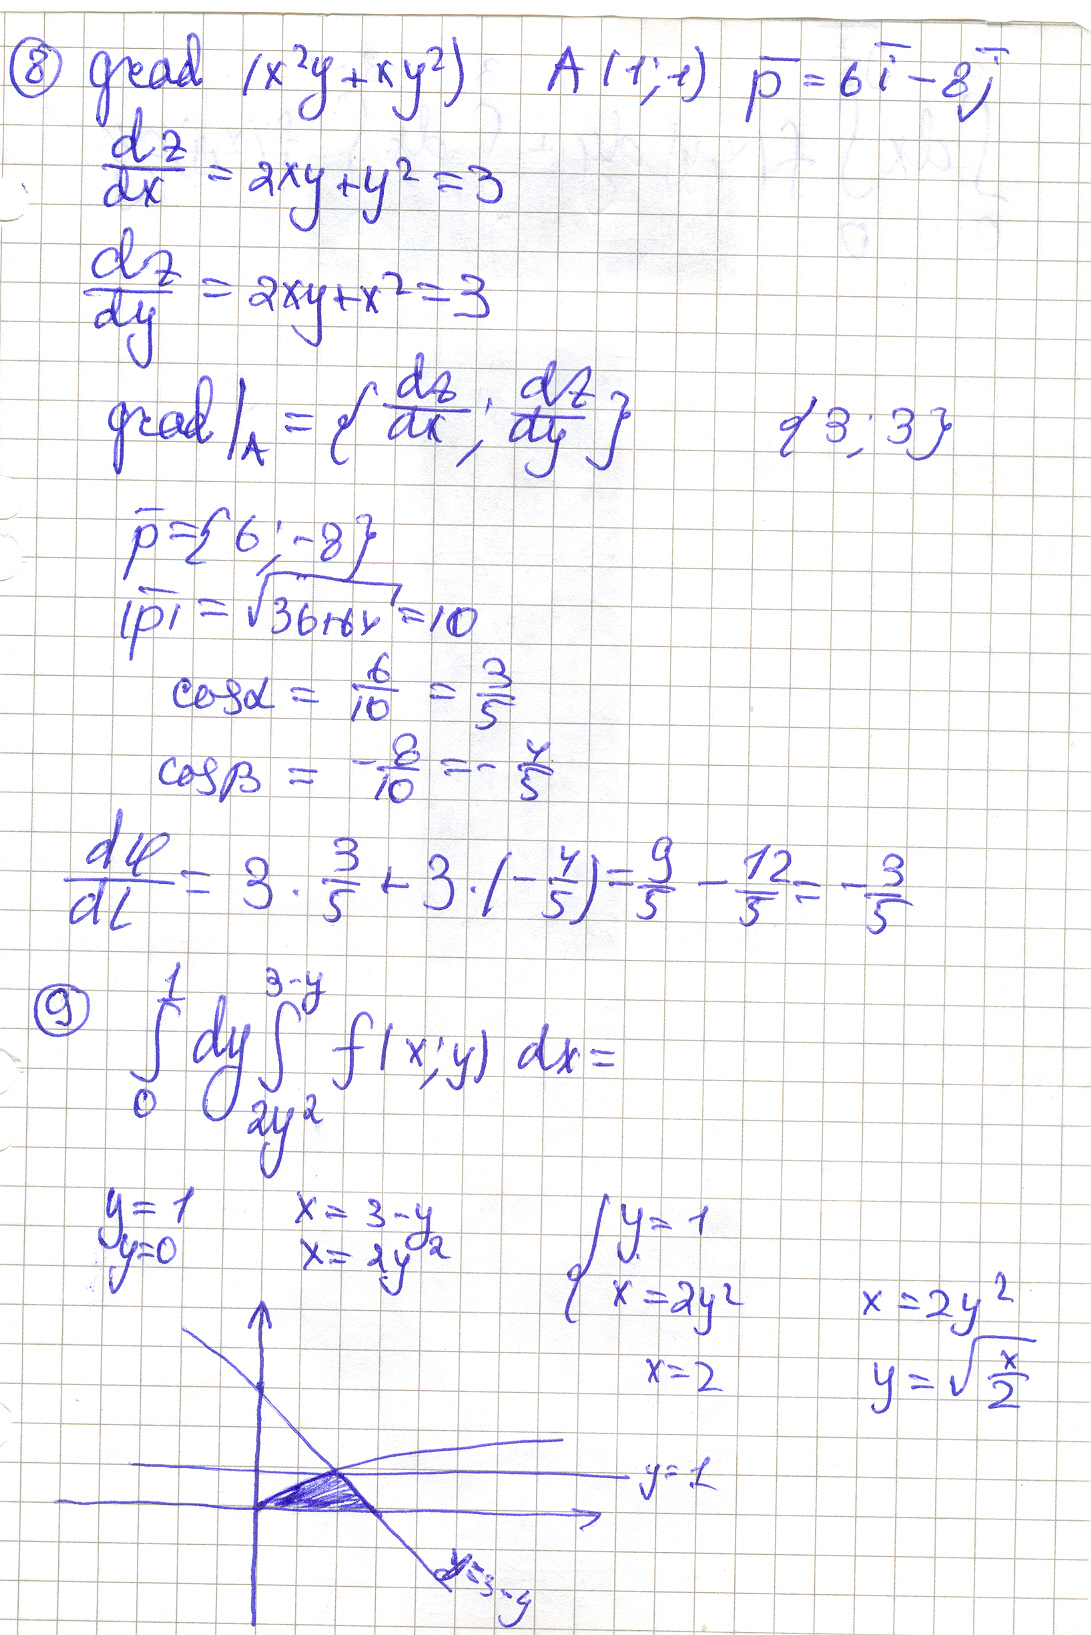 ⑧ grad (x²y+xy²) A(1;1) p̅=6i̅-8j̅
dz/dx = 2xy+y²=3
dz/dy = 2xy+x²=3
grad|_A = {dz/dx; dz/dy} {3; 3}
p̅={6;-8}
|p̅| = √(36+64)=10
cosα = 6/10 = 3/5
cosβ = -8/10 = -4/5
dφ/dl = 3·3/5 + 3·(-4/5)=9/5 - 12/5 = -3/5
⑨ ∫₀¹ dy ∫_{2y²}^{3-y} f(x;y) dx=
y=1 x=3-y { y=1
y=0 x=2y² x=2y² x=2y²
x=2 y=√(x/2)
y=1
x=3-y